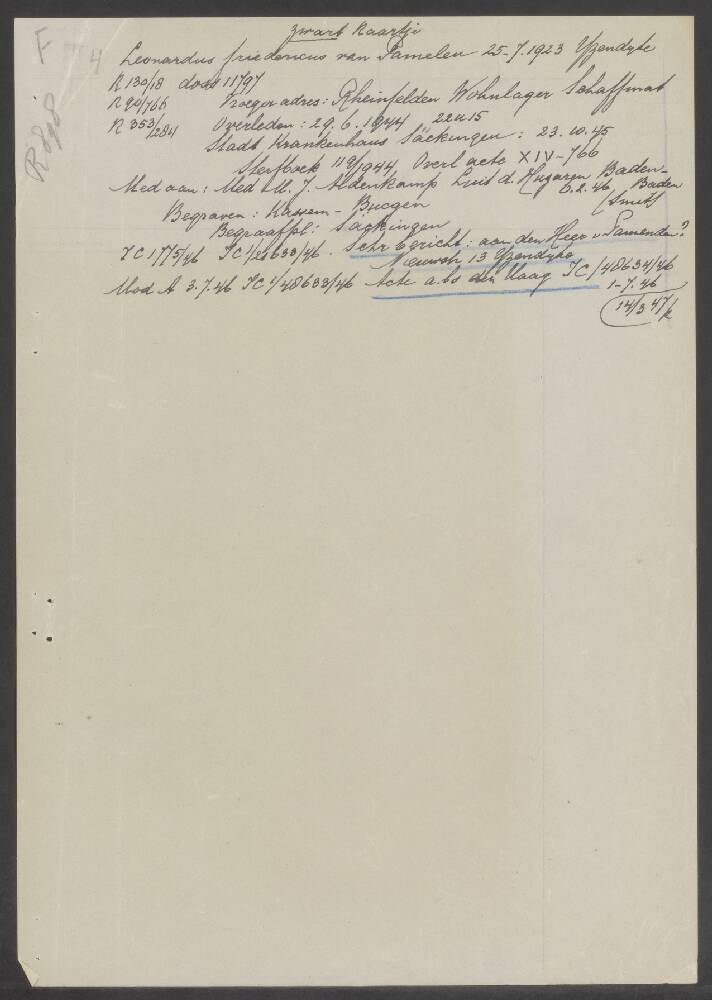 F 4
R 898
zwart kaartje
Leonardus friedericus van Pamelen 25-7.1923 Yzendyke
R 130/18 doos 11797
R 90/766 Vroeger adres: Rheinfelden Wohnlager Schaffmat
R 353/284 Overleden: 29.6.1944 22u15
Stadt Krankenhaus Säckingen: 23.10.45
Sterfboek 118/1944 Overl acte XIV-766
Med aan: Med Lt. J. Aldenkamp Luit d. Huzaren Baden-Baden
6.2.46 (Smits
Begraven: Kassem-
Begraafpl: Säckingen
IC 1775/46 IC 1/21633/46. Schr bericht: aan den Heer v. Pamenden?
Nieuwstr 13 Yzendyke
Mod A 3.7.46 IC 1/48633/46 Acte a.bs den Haag IC/48634/46
1-7.46
14/3 47/k